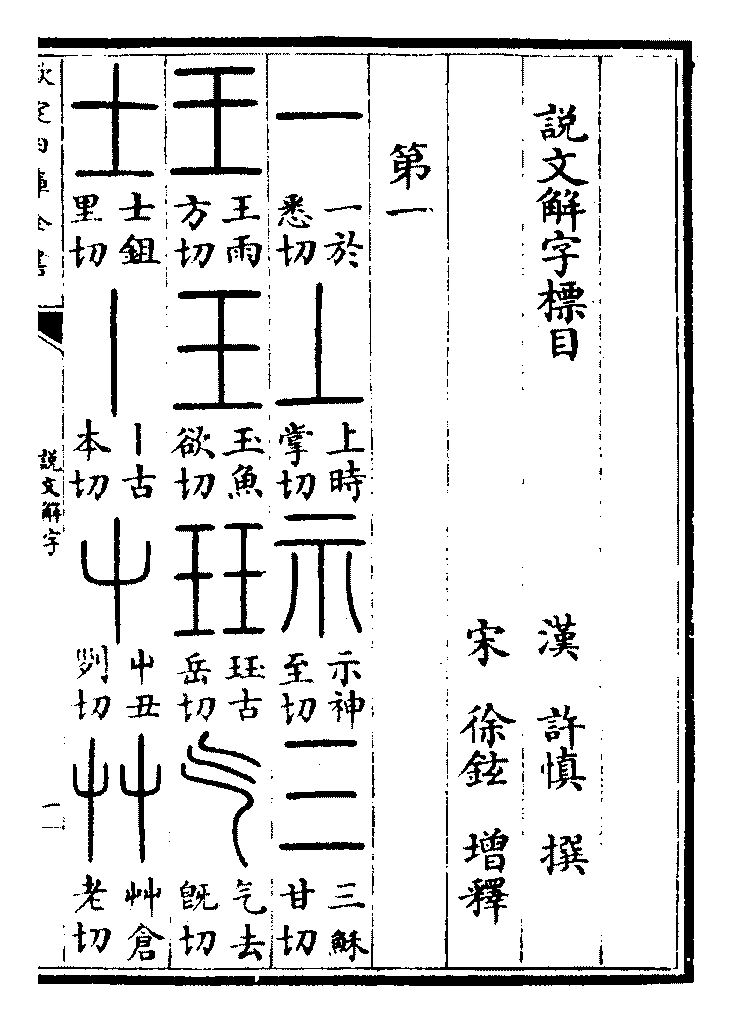 説文解字標目
漢 許慎 撰
宋 徐鉉 增釋
第一
一 一於悉切 丄 上時掌切 示 示神至切 三 三穌甘切
王 王雨方切 玉 玉魚欲切 玨 玨古岳切 气 气去旣切
士 士鉏里切 丨 丨古本切 屮 屮丑列切 艸 艸倉老切
欽定四庫全書
說文解字
一